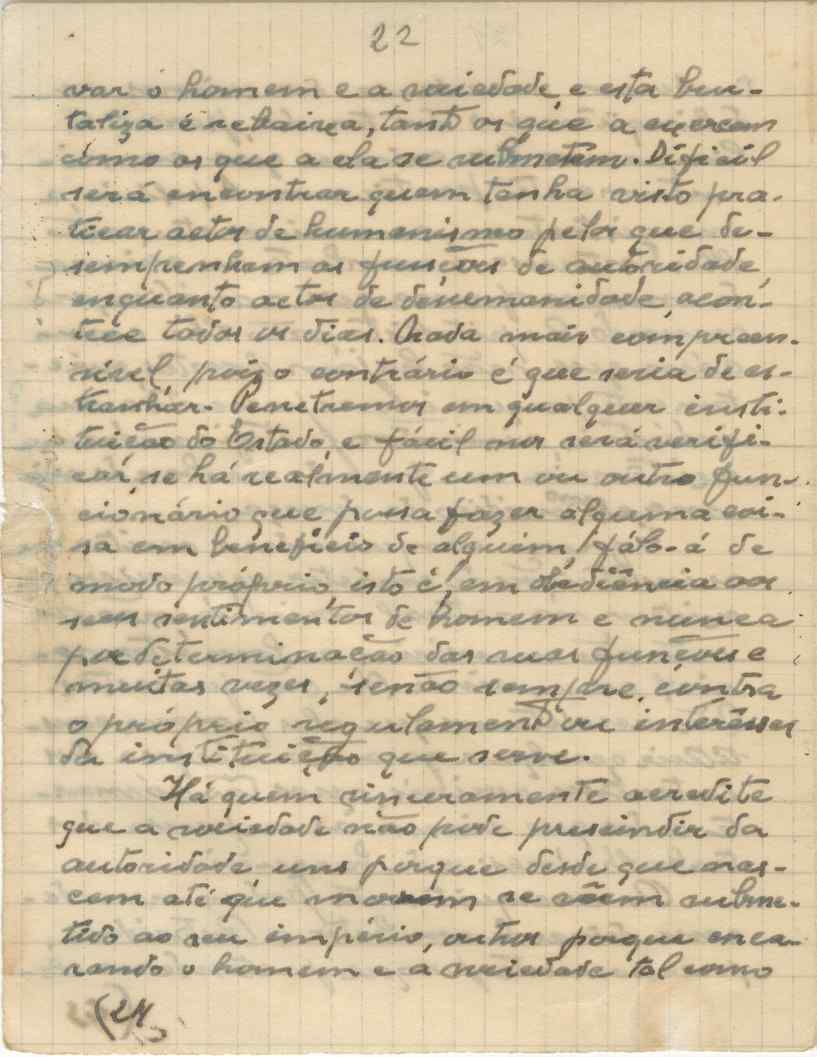 22
var o homem e a sociedade, e esta bru-
taliza e rebaixa, tanto os que a exercem
como os que a ela se submetem. Dificil
será encontrar quem tenha visto pra-
ticar actos de humanismo pelos que de-
sempenham as funções de autoridade,
enquanto actos de desumanidade, acon-
tece todos os dias. Nada mais compreen-
sivel, pois o contrário é que seria de es-
tranhar. Penetremos em qualquer insti-
tuição do Estado, e fácil nos será verifi-
car, se há realmente um ou outro fun-
cionário que possa fazer alguma coi-
sa em beneficio de alguém, fálo-á de
modo próprio, isto é, em obediência aos
seus sentimentos de homem e nunca
por determinação das suas funções e
muitas vezes, senão sempre, contra
o próprio regulamento ou interêsses
da instituição que serve.
Há quem sinceramente acredite
que a sociedade não pode prescindir da
autoridade uns porque desde que nas-
cem até que morrem se vêem subme-
tido ao seu império, outros porque enca-
rando o homem e a sociedade tal como
(24